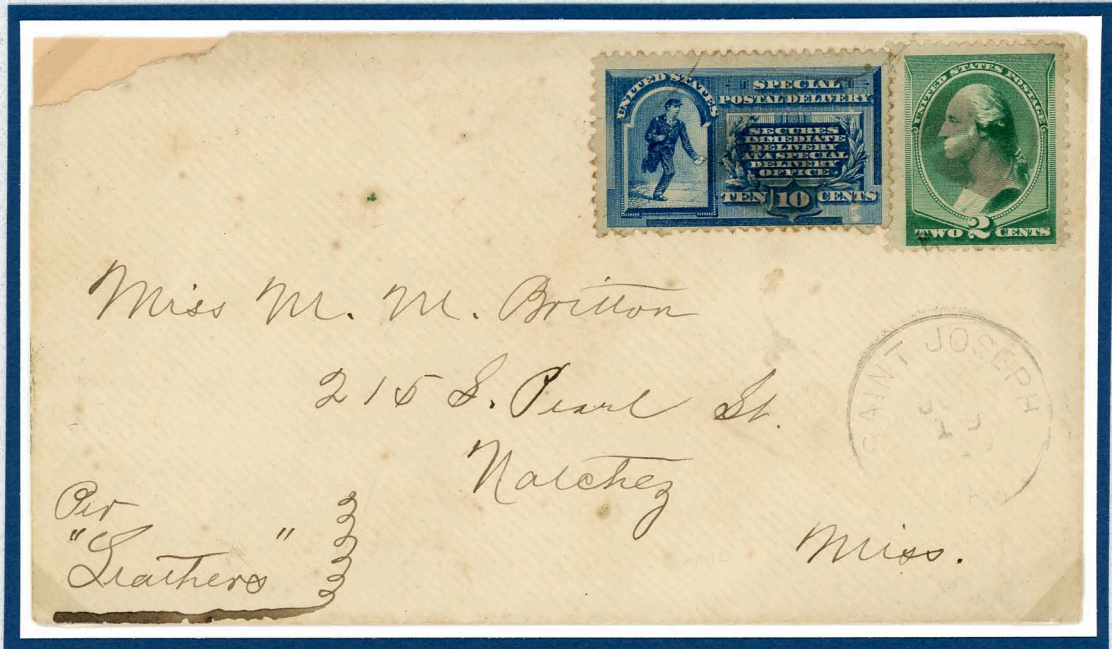 UNITED STATES
SPECIAL
POSTAL DELIVERY
SECURES
IMMEDIATE
DELIVERY
AT A SPECIAL
DELIVERY
OFFICE.
TEN 10 CENTS
UNITED STATES POSTAGE
TWO 2 CENTS
Miss M. M. Britton
215 S. Pearl St.
Natchez
Miss.
SAINT JOSEPH
19
LA.
Per
"Leathers"